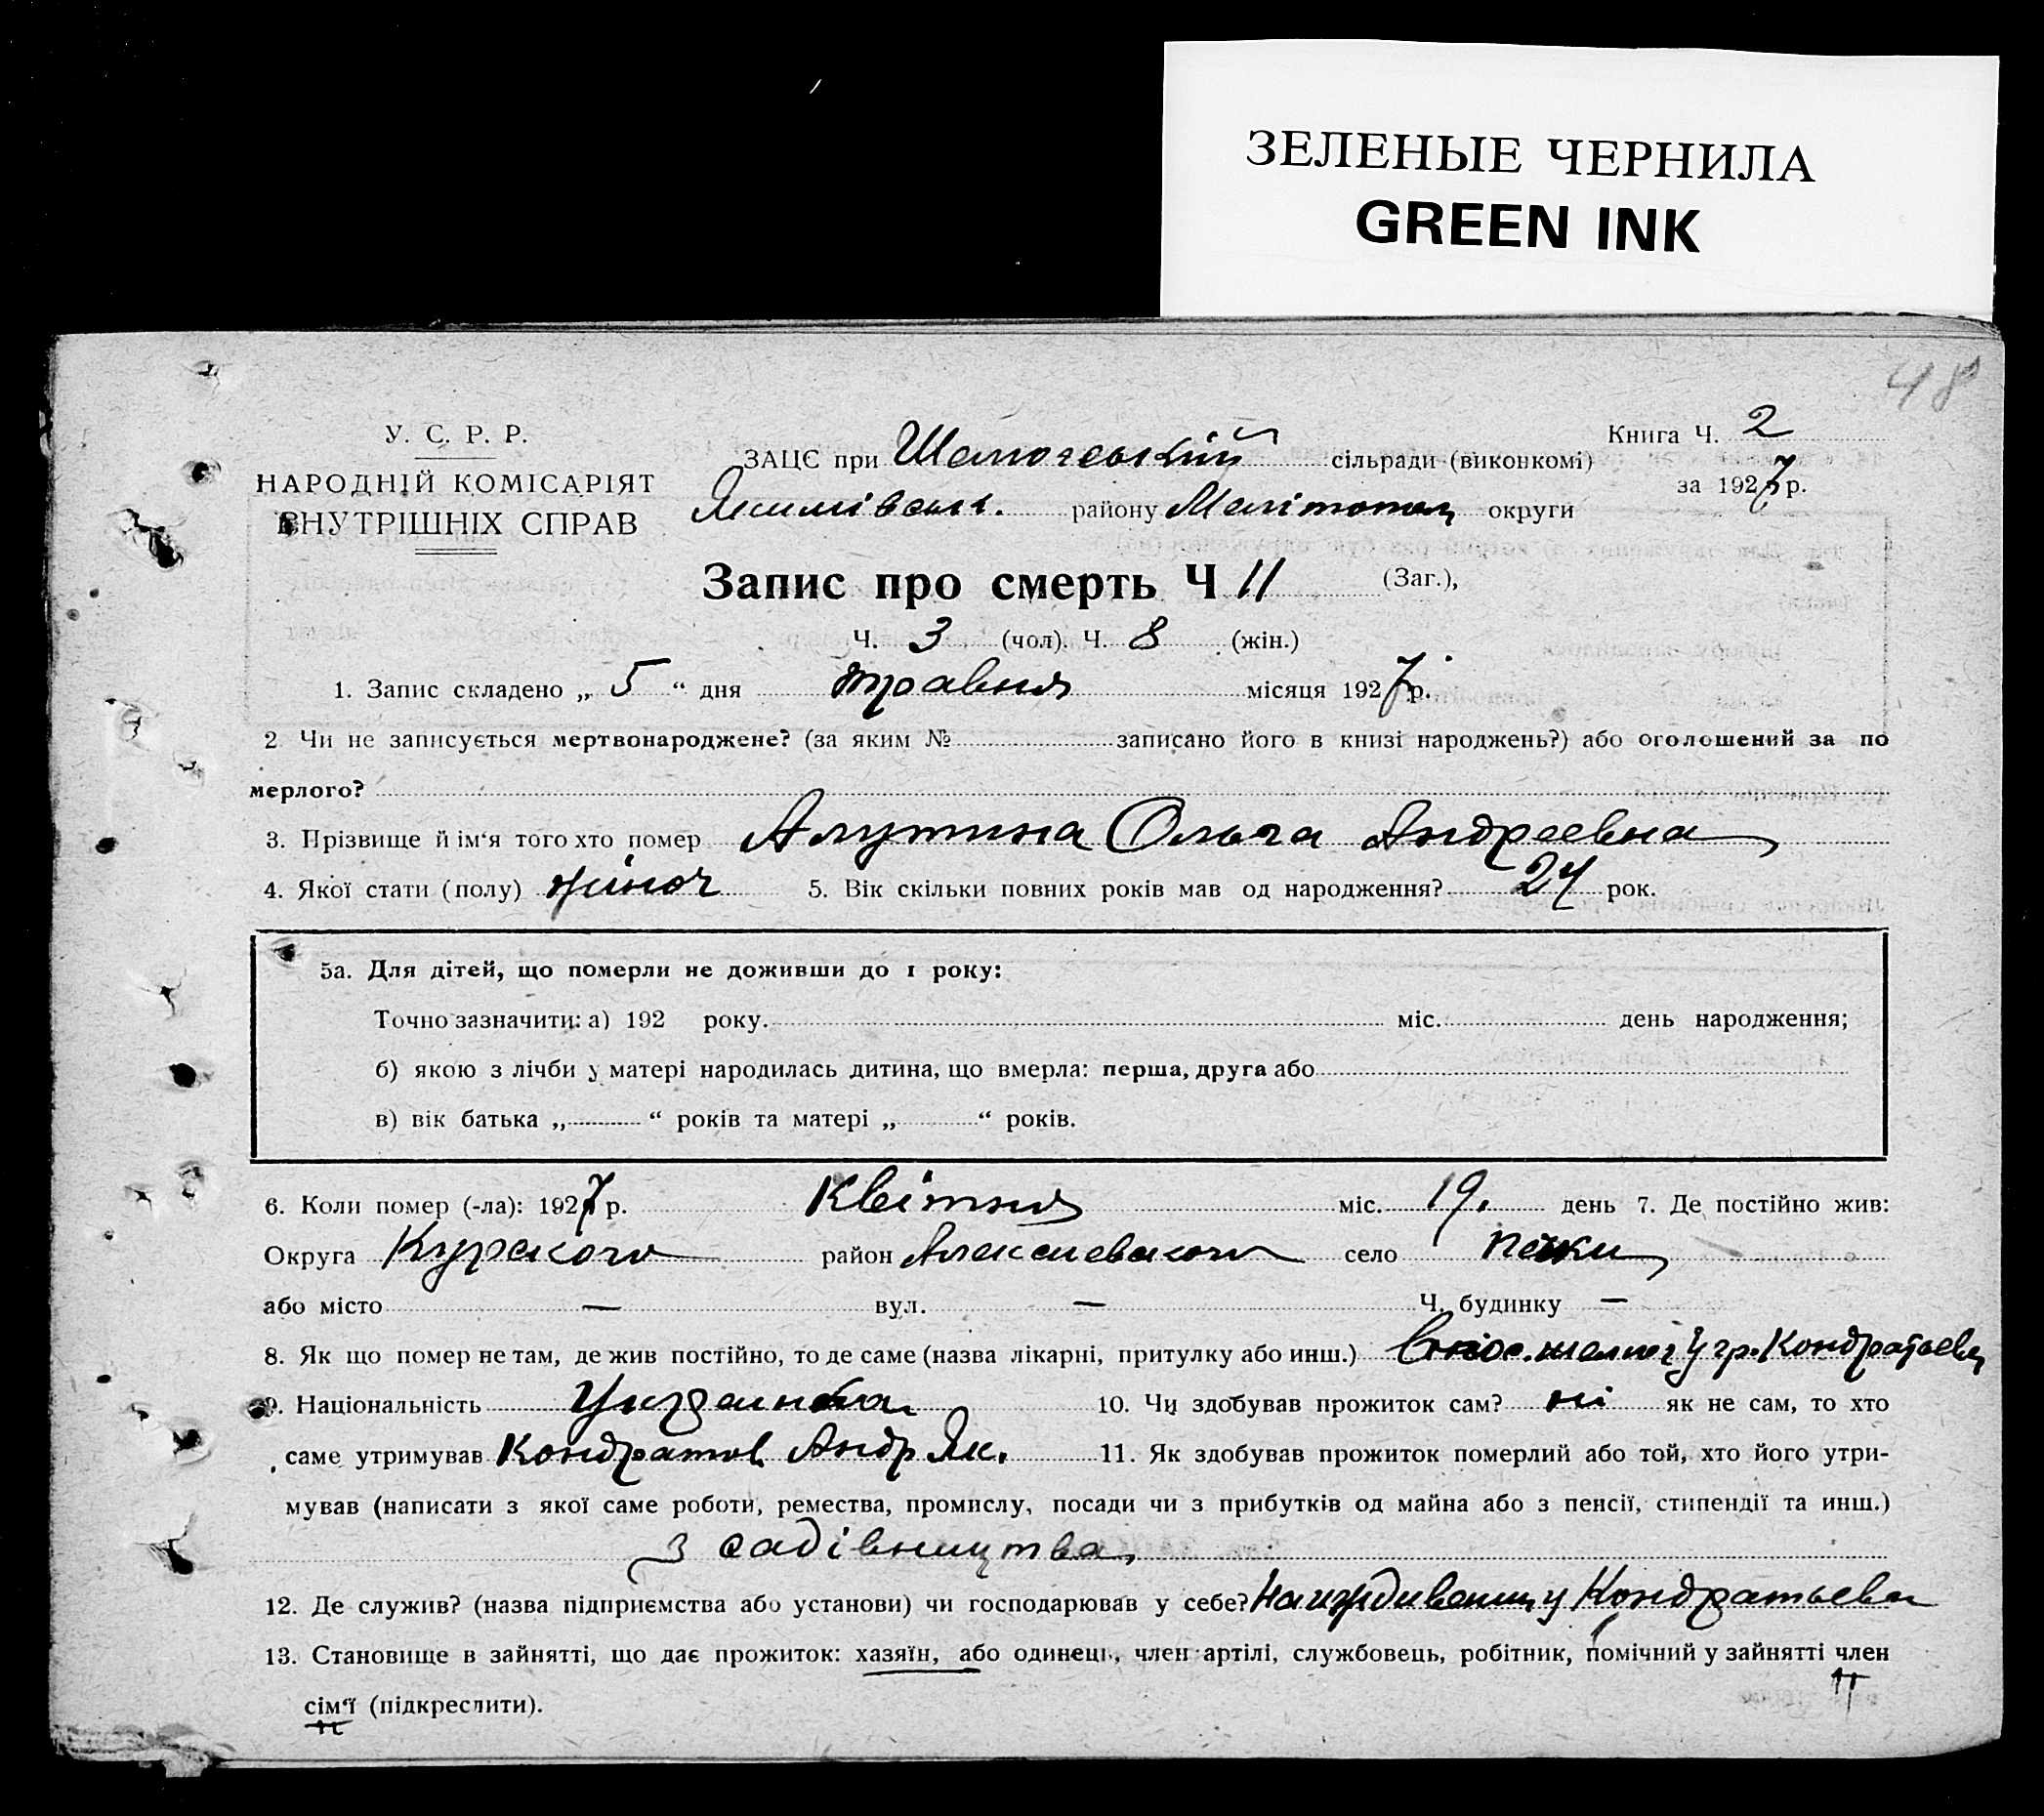 ЗЕЛЕНЫЕ ЧЕРНИЛА
GREEN INK
48
У. С. Р. Р.
НАРОДНІЙ КОМІСАРІЯТ
ВНУТРІШНІХ СПРАВ
ЗАЦС при сільради (виконкомі)
району Мелітопол округи
Книга Ч. 2
за 1927 р.
Запис про смерть Ч 11 (Заг.),
Ч. 3 (чол). Ч. 8 (жін.)
1. Запис складено „ 5 “ дня травня місяця 1927 р.
2 Чи не записується мертвонароджене? (за яким № записано його в книзі народжень?) або оголошений за по
мерлого?
3. Прізвище й ім‘я того хто помер Алутина Ольга Андреевна
4. Якої стати (полу) жіноч 5. Вік скільки повних років мав од народження? 24 рок.
5а. Для дітей, що померли не доживши до 1 року:
Точно зазначити: а) 192 року. міс. день народження;
б) якою з лічби у матері народилась дитина, що вмерла: перша, друга або
в) вік батька „ “ років та матері „ “ років.
6. Коли помер (-ла): 1927 р. Квітня міс. 19. день 7. Де постійно жив:
Округа Курского район Алексиевского село
або місто — вул. — Ч. будинку —
8. Як що помер не там, де жив постійно, то де саме (назва лікарні, притулку або инш.) у гр. Кондратьева
9. Національність Украинка 10. Чи здобував прожиток сам? ні як не сам, то хто
саме утримував Кондратов Андр Як. 11. Як здобував прожиток померлий або той, хто його утри-
мував (написати з якої саме роботи, ремества, промислу, посади чи з прибутків од майна або з пенсії, стипендії та инш.)
з садівництва
12. Де служив? (назва підприємства або установи) чи господарював у себе? На иждивении у Кондратьева
13. Становище в зайнятті, що дає прожиток: хазяїн, або одинець, член артілі, службовець, робітник, помічний у зайнятті член
сім‘ї (підкреслити).